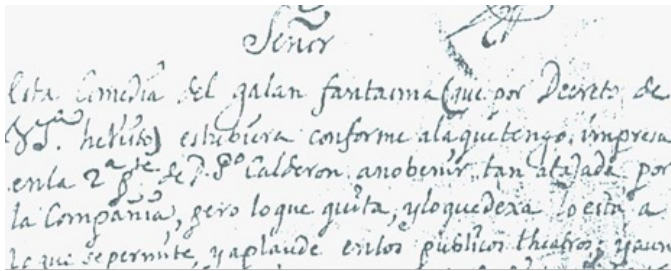 Señor
Esta Comedia del galan fantasma (que por Decreto de
V. S.ª he visto) estubiera conforme ala que tengo impresa
en la 2ª pte. de D. Pº Calderon, a no benir tan atajada por
la Compañia, pero lo que quita, y lo que dexa lo esta a
lo que se permite, y aplaude en los publicos theatros; y aun